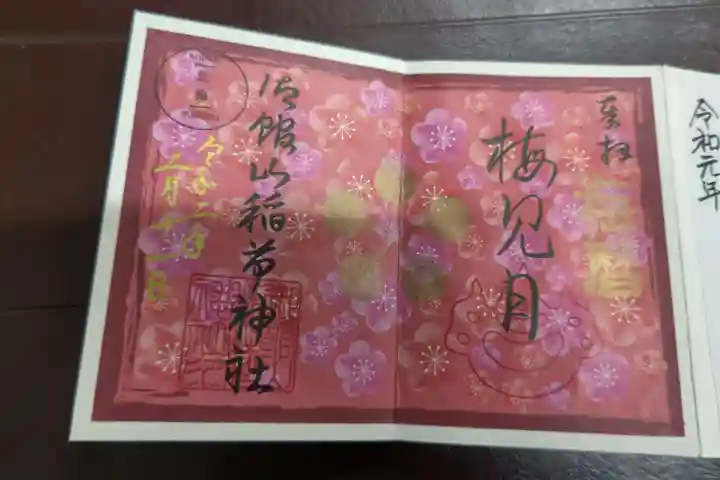 令和元年
奉拝
梅見月
御館山稲荷神社
令和二年
二月十一日